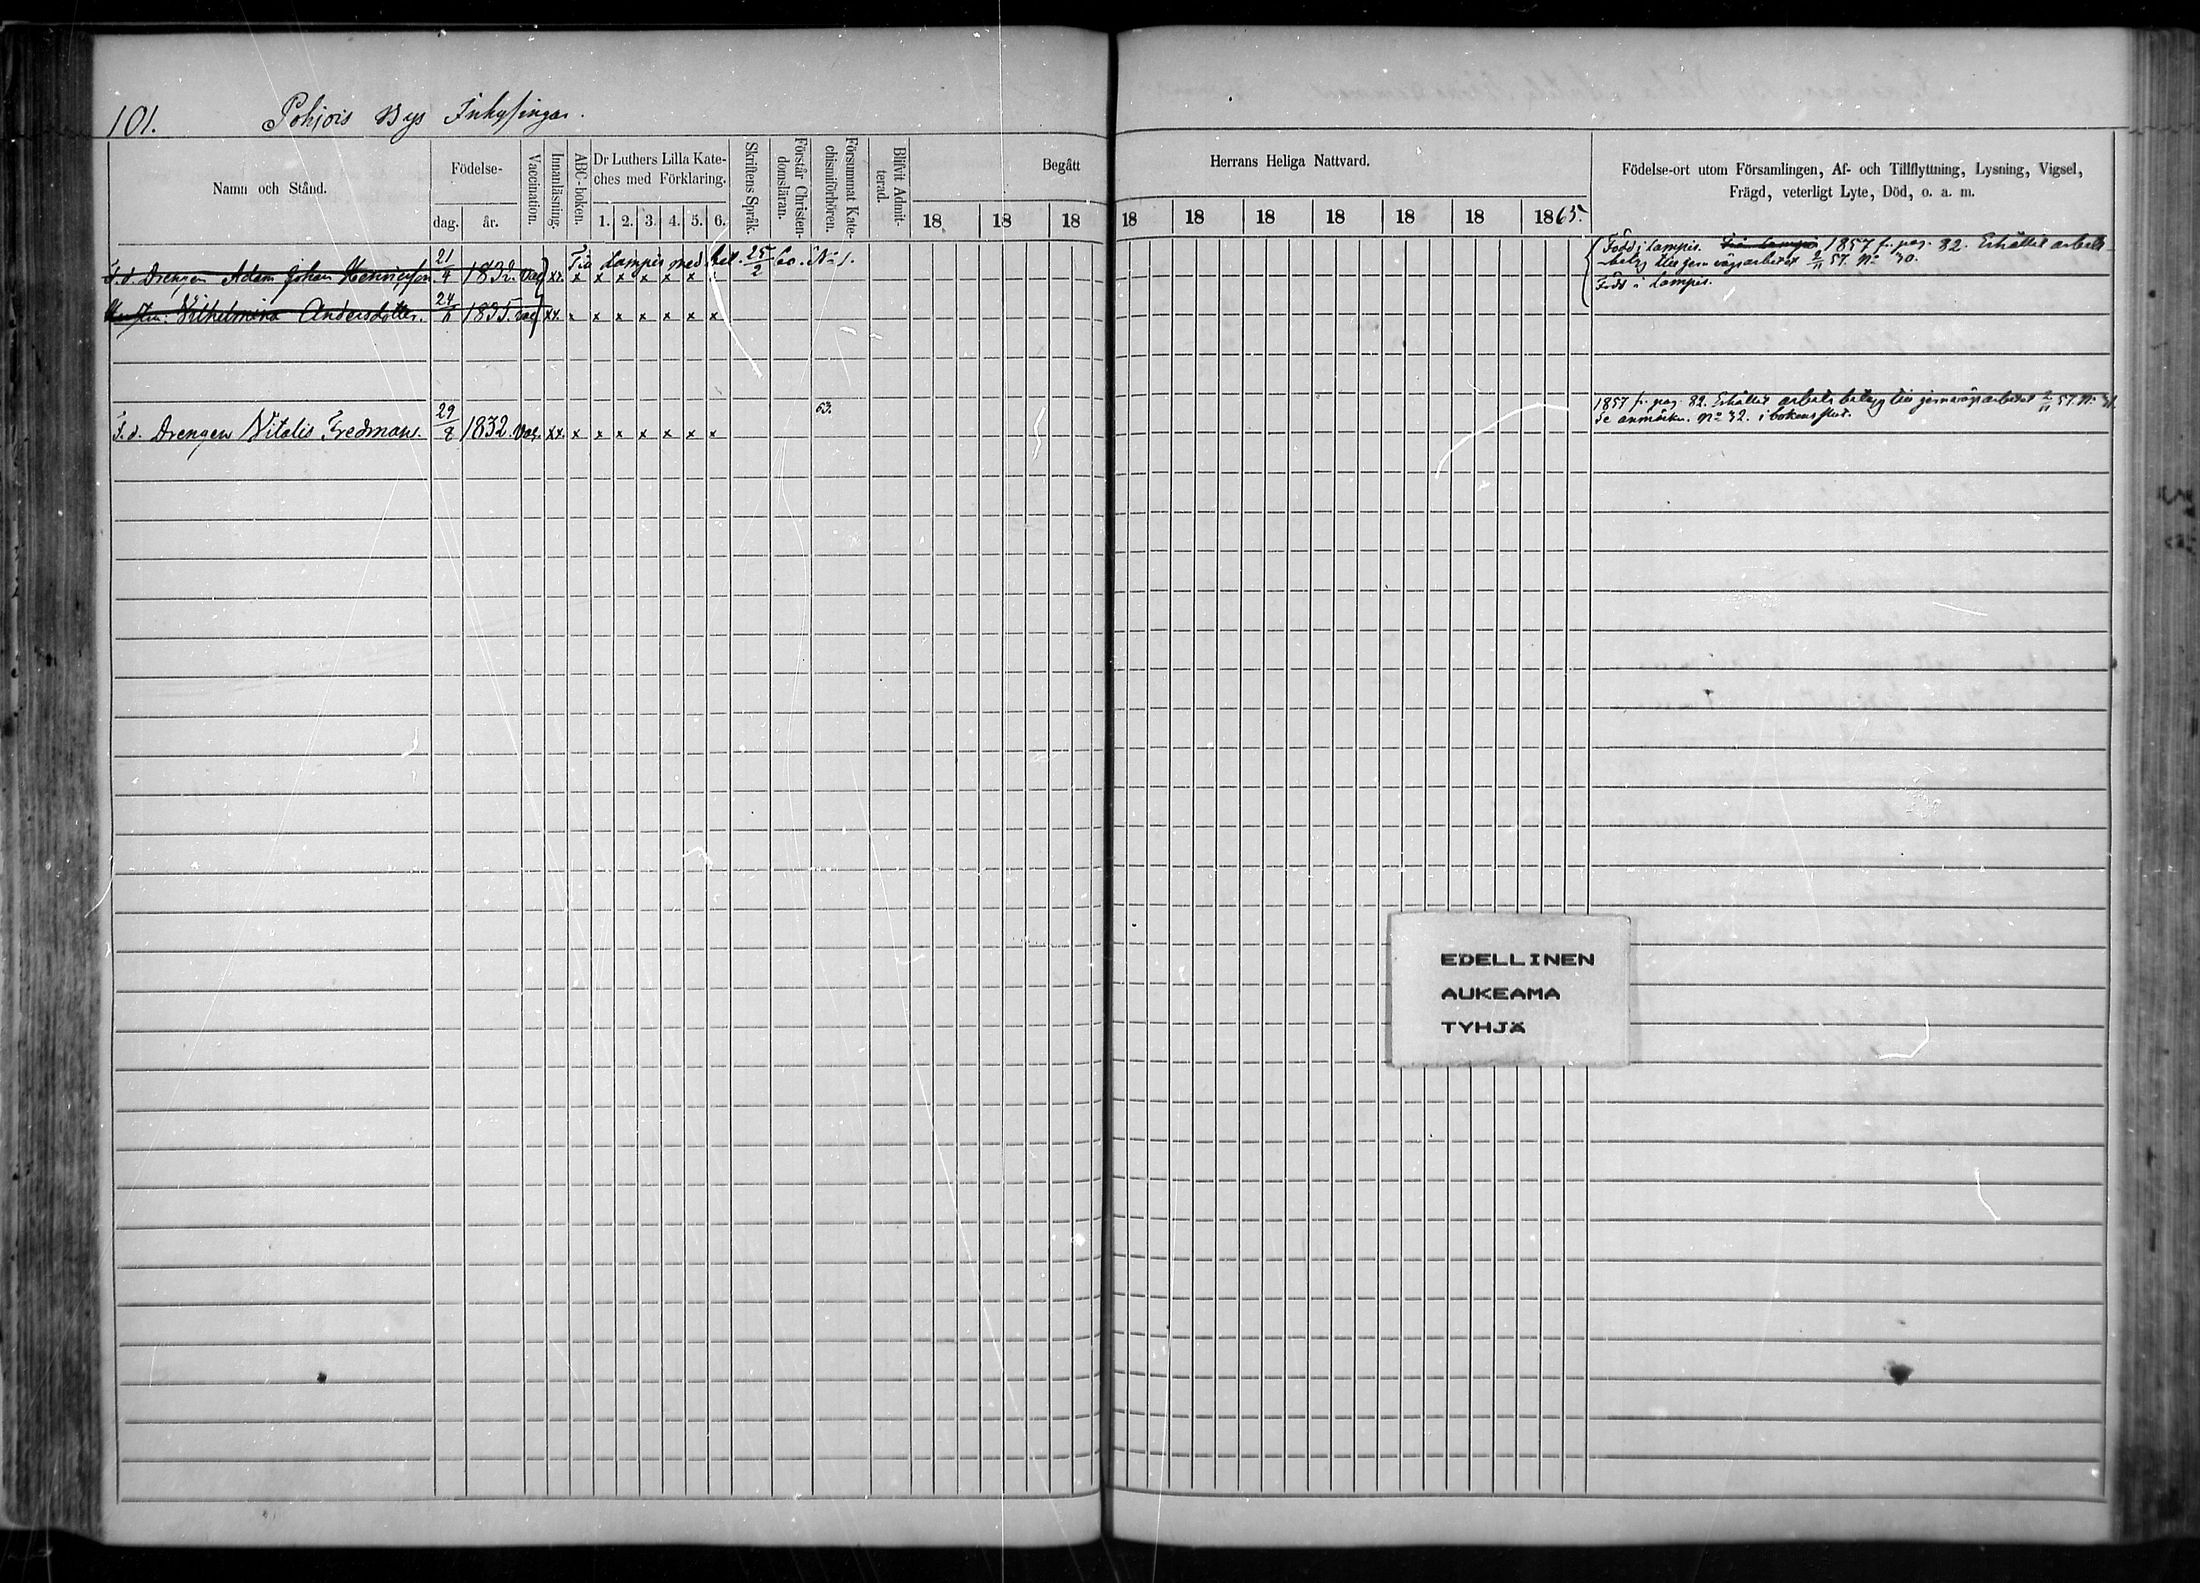 101. Pohjois Bys Inhysingar.
Namn och Stånd.
Födelse-
dag. år.
Vaccination.
Innanläsning.
ABC-boken.
Dr Luthers Lilla Kate-
ches med Förklaring.
1. 2. 3. 4. 5. 6.
Skriftens Språk.
Förstår Christen-
domsläran.
Försummat Kate-
chismiförhören.
Blifvit Admit-
terad.
Begått Herrans Heliga Nattvard.
18 18 18 18 18 18 18 18 18 1865.
Födelse-ort utom Församlingen, Af- och Tillflyttning, Lysning, Vigsel,
Frägd, veterligt Lyte, Död, o. a. m.
Till Lampis med bet. 25/2 60. No 1.
F. d. Drengen Adam Johan Henricsson 21/4 1832. Vac. xx. x x x x x x
Född i Lampis. Från Lampis 1857 fr. pag. 82. Erhållit arbets-
betyg till jernvägsarbetet 2/11 57. No 30.
Hustru: Vilhelmina Andersdotter. 24/11 1835. vac xx. x x x x x x x
Född i Lampis.
F. d. Drengen Vitalis Fredman. 29/8 1832. Vac. xx. x x x x x x x 63.
1857 fr. pag. 82. Erhållit arbets betyg till jernvägsarbetet 2/11 57. No 31.
Se anmärkn. No 32. i bokens slut.
EDELLINEN
AUKEAMA
TYHJÄ